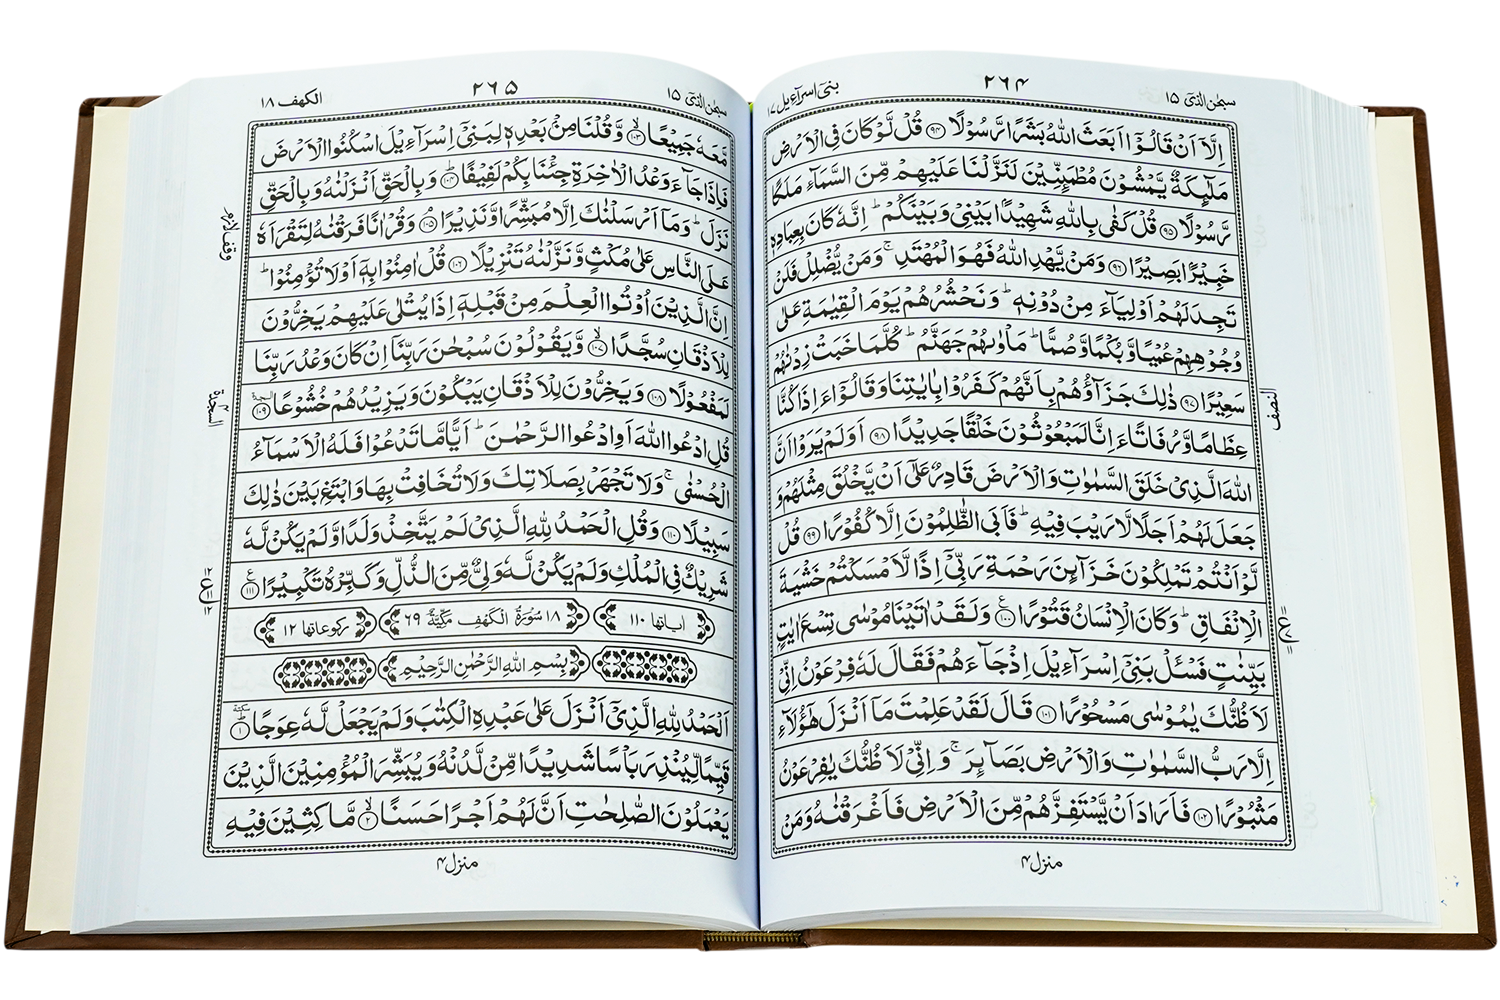 سبحٰن الذیٓ ۱۵
۲۶۴
بنیٓ اسرآءیل ۱۷
اِلَّاۤ اَنْ قَالُوْۤا اَبَعَثَ اللّٰهُ بَشَرًا رَّسُوْلًا ﴿۹۴﴾ قُلْ لَّوْ كَانَ فِی الْاَرْضِ
مَلٰٓىِٕكَةٌ یَّمْشُوْنَ مُطْمَىِٕنِّیْنَ لَنَزَّلْنَا عَلَیْهِمْ مِّنَ السَّمَآءِ مَلَكًا
رَّسُوْلًا ﴿۹۵﴾ قُلْ كَفٰی بِاللّٰهِ شَهِیْدًۢا بَیْنِیْ وَبَیْنَكُمْ ؕ اِنَّهٗ كَانَ بِعِبَادِهٖ
خَبِیْرًۢا بَصِیْرًا ﴿۹۶﴾ وَمَنْ یَّهْدِ اللّٰهُ فَهُوَ الْمُهْتَدِ ۚ وَمَنْ یُّضْلِلْ فَلَنْ
تَجِدَ لَهُمْ اَوْلِیَآءَ مِنْ دُوْنِهٖ ؕ وَنَحْشُرُهُمْ یَوْمَ الْقِیٰمَةِ عَلٰی
وُجُوْهِهِمْ عُمْیًا وَّبُكْمًا وَّصُمًّا ؕ مَاْوٰىهُمْ جَهَنَّمُ ؕ كُلَّمَا خَبَتْ زِدْنٰهُمْ
سَعِیْرًا ﴿۹۷﴾ ذٰلِكَ جَزَآؤُهُمْ بِاَنَّهُمْ كَفَرُوْا بِاٰیٰتِنَا وَقَالُوْۤا ءَاِذَا كُنَّا
عِظَامًا وَّرُفَاتًا ءَاِنَّا لَمَبْعُوْثُوْنَ خَلْقًا جَدِیْدًا ﴿۹۸﴾ اَوَلَمْ یَرَوْا اَنَّ
اللّٰهَ الَّذِیْ خَلَقَ السَّمٰوٰتِ وَالْاَرْضَ قَادِرٌ عَلٰۤی اَنْ یَّخْلُقَ مِثْلَهُمْ وَ
جَعَلَ لَهُمْ اَجَلًا لَّا رَیْبَ فِیْهِ ؕ فَاَبَی الظّٰلِمُوْنَ اِلَّا كُفُوْرًا ﴿۹۹﴾ قُلْ
لَّوْ اَنْتُمْ تَمْلِكُوْنَ خَزَآىِٕنَ رَحْمَةِ رَبِّیْۤ اِذًا لَّاَمْسَكْتُمْ خَشْیَةَ
الْاِنْفَاقِ ؕ وَكَانَ الْاِنْسَانُ قَتُوْرًا ﴿۱۰۰﴾ وَلَقَدْ اٰتَیْنَا مُوْسٰی تِسْعَ اٰیٰتٍۭ
بَیِّنٰتٍ فَسْـَٔلْ بَنِیْۤ اِسْرَآءِیْلَ اِذْ جَآءَهُمْ فَقَالَ لَهٗ فِرْعَوْنُ اِنِّیْ
لَاَظُنُّكَ یٰمُوْسٰی مَسْحُوْرًا ﴿۱۰۱﴾ قَالَ لَقَدْ عَلِمْتَ مَاۤ اَنْزَلَ هٰۤؤُلَآءِ
اِلَّا رَبُّ السَّمٰوٰتِ وَالْاَرْضِ بَصَآىِٕرَ ۚ وَاِنِّیْ لَاَظُنُّكَ یٰفِرْعَوْنُ
مَثْبُوْرًا ﴿۱۰۲﴾ فَاَرَادَ اَنْ یَّسْتَفِزَّهُمْ مِّنَ الْاَرْضِ فَاَغْرَقْنٰهُ وَمَنْ
النصف
منزل ۴
سبحٰن الذیٓ ۱۵
۲۶۵
الكهف ۱۸
مَّعَهٗ جَمِیْعًا ﴿۱۰۳﴾ ۙ وَّقُلْنَا مِنْۢ بَعْدِهٖ لِبَنِیْۤ اِسْرَآءِیْلَ اسْكُنُوا الْاَرْضَ
فَاِذَا جَآءَ وَعْدُ الْاٰخِرَةِ جِئْنَا بِكُمْ لَفِیْفًا ﴿۱۰۴﴾ ؕ وَبِالْحَقِّ اَنْزَلْنٰهُ وَبِالْحَقِّ
نَزَلَ ؕ وَمَاۤ اَرْسَلْنٰكَ اِلَّا مُبَشِّرًا وَّنَذِیْرًا ﴿۱۰۵﴾ وَقُرْاٰنًا فَرَقْنٰهُ لِتَقْرَاَهٗ
عَلَی النَّاسِ عَلٰی مُكْثٍ وَّنَزَّلْنٰهُ تَنْزِیْلًا ﴿۱۰۶﴾ قُلْ اٰمِنُوْا بِهٖۤ اَوْ لَا تُؤْمِنُوْا ؕ
اِنَّ الَّذِیْنَ اُوْتُوا الْعِلْمَ مِنْ قَبْلِهٖۤ اِذَا یُتْلٰی عَلَیْهِمْ یَخِرُّوْنَ
لِلْاَذْقَانِ سُجَّدًا ﴿۱۰۷﴾ ۙ وَّیَقُوْلُوْنَ سُبْحٰنَ رَبِّنَاۤ اِنْ كَانَ وَعْدُ رَبِّنَا
لَمَفْعُوْلًا ﴿۱۰۸﴾ وَیَخِرُّوْنَ لِلْاَذْقَانِ یَبْكُوْنَ وَیَزِیْدُهُمْ خُشُوْعًا ﴿۱۰۹﴾ السجدة
قُلِ ادْعُوا اللّٰهَ اَوِ ادْعُوا الرَّحْمٰنَ ؕ اَیًّا مَّا تَدْعُوْا فَلَهُ الْاَسْمَآءُ
الْحُسْنٰی ۚ وَلَا تَجْهَرْ بِصَلَاتِكَ وَلَا تُخَافِتْ بِهَا وَابْتَغِ بَیْنَ ذٰلِكَ
سَبِیْلًا ﴿۱۱۰﴾ وَقُلِ الْحَمْدُ لِلّٰهِ الَّذِیْ لَمْ یَتَّخِذْ وَلَدًا وَّلَمْ یَكُنْ لَّهٗ
شَرِیْكٌ فِی الْمُلْكِ وَلَمْ یَكُنْ لَّهٗ وَلِیٌّ مِّنَ الذُّلِّ وَكَبِّرْهُ تَكْبِیْرًا ﴿۱۱۱﴾
اٰیاتها ۱۱۰ ۱۸ سُوْرَةُ الْكَهْفِ مَكِّیَّةٌ ۶۹ ركوعاتها ۱۲
بِسْمِ اللّٰهِ الرَّحْمٰنِ الرَّحِیْمِ
اَلْحَمْدُ لِلّٰهِ الَّذِیْۤ اَنْزَلَ عَلٰی عَبْدِهِ الْكِتٰبَ وَلَمْ یَجْعَلْ لَّهٗ عِوَجًا ﴿۱﴾ سكتة
قَیِّمًا لِّیُنْذِرَ بَاْسًا شَدِیْدًا مِّنْ لَّدُنْهُ وَیُبَشِّرَ الْمُؤْمِنِیْنَ الَّذِیْنَ
یَعْمَلُوْنَ الصّٰلِحٰتِ اَنَّ لَهُمْ اَجْرًا حَسَنًا ﴿۲﴾ ۙ مَّاكِثِیْنَ فِیْهِ
وقف لازم
السجدة
۱۲
ع ۱۱
۱۲
منزل ۴